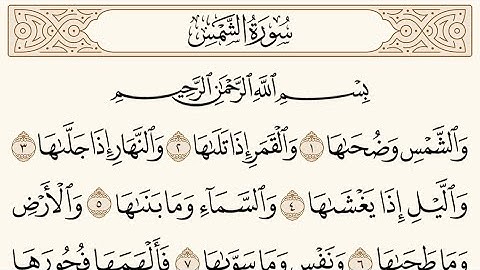 سُورَةُ الشَّمْسِ
بِسْمِ اللَّهِ الرَّحْمَٰنِ الرَّحِيمِ
وَالشَّمْسِ وَضُحَىٰهَا ١ وَالْقَمَرِ إِذَا تَلَىٰهَا ٢ وَالنَّهَارِ إِذَا جَلَّىٰهَا ٣
وَالَّيْلِ إِذَا يَغْشَىٰهَا ٤ وَالسَّمَآءِ وَمَا بَنَىٰهَا ٥ وَالْأَرْضِ
وَمَا طَحَىٰهَا ٦ وَنَفْسٍ وَمَا سَوَّىٰهَا ٧ فَأَلْهَمَهَا فُجُورَهَا